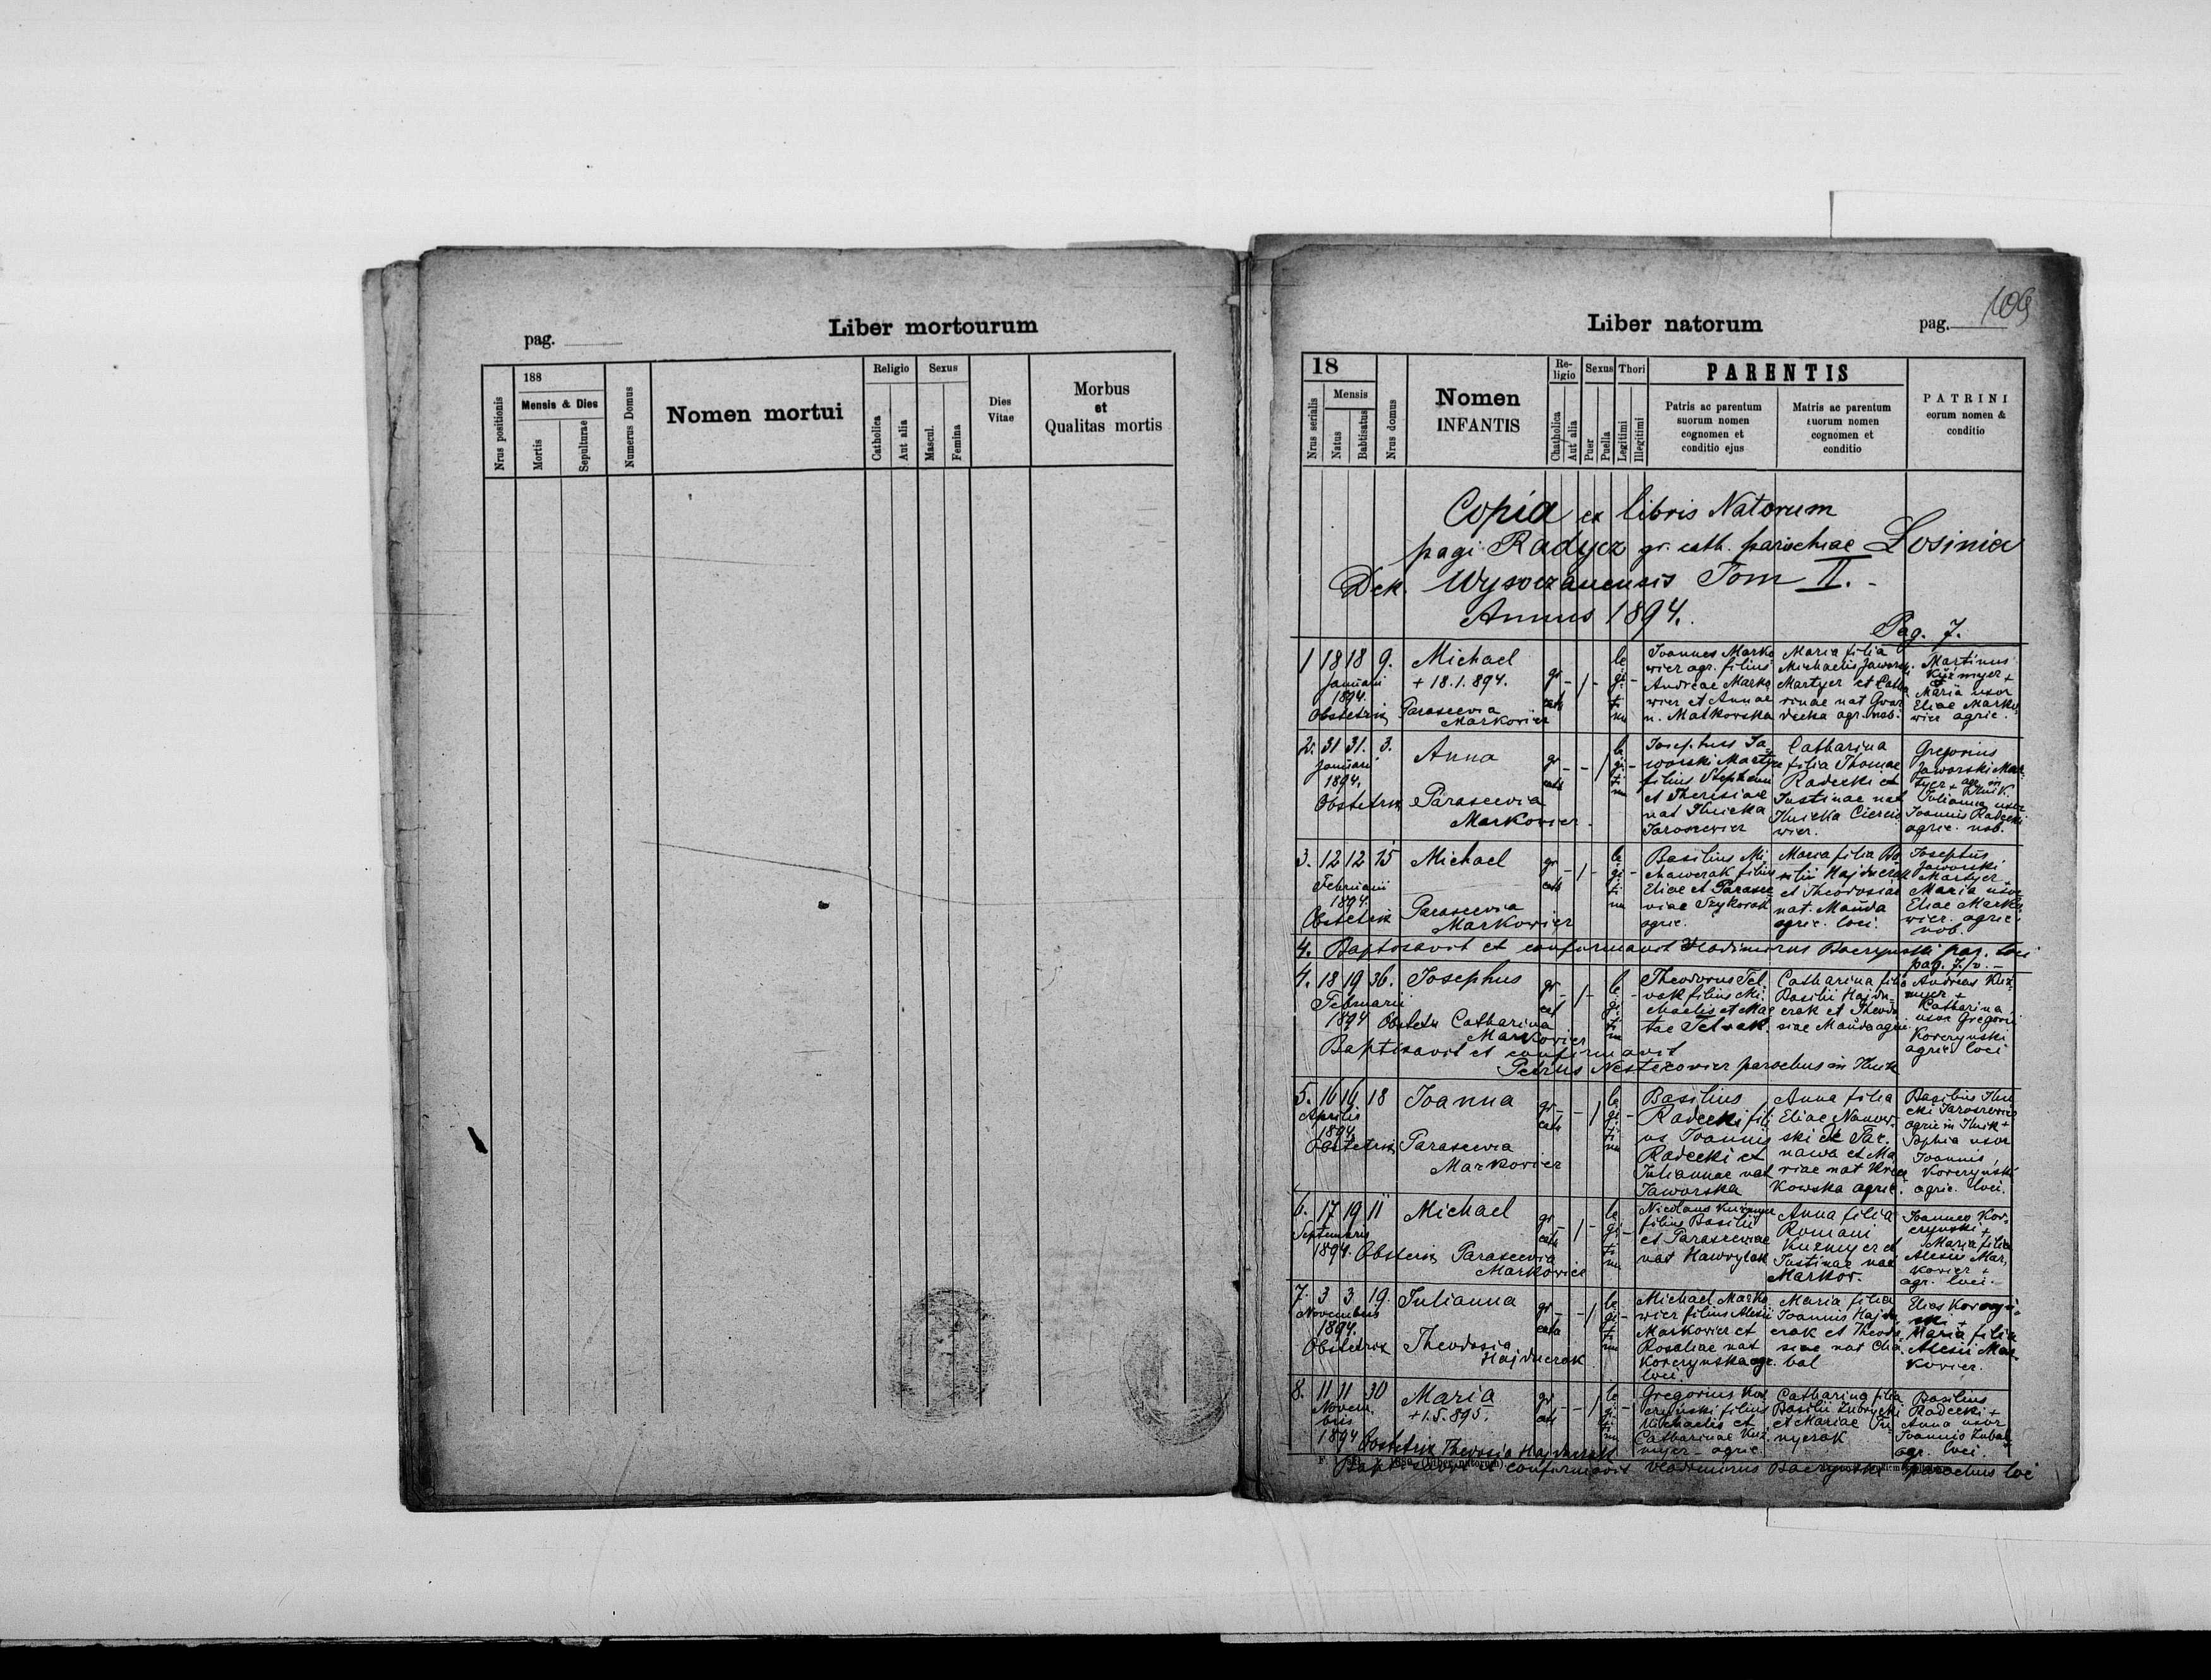 Liber mortourum
pag.
Nrus positionis
188
Mensis & Dies
Mortis
Sepulturae
Numerus Domus
Nomen mortui
Religio
Catholica
Aut alia
Sexus
Mascul.
Femina
Dies
Vitae
Morbus
et
Qualitas mortis
Liber natorum
pag. 109
18
Nrus serialis
Mensis
Natus
Babtisatus
Nrus domus
Nomen
INFANTIS
Re-
ligio
Chatholica
Aut alia
Sexus
Puer
Puella
Thori
Legitimi
Illegitimi
PARENTIS
Patris ac parentum
suorum nomen
cognomen et
conditio ejus
Matris ac parentum
suorum nomen
cognomen et
conditio
PATRINI
eorum nomen &
conditio
Copia ex libris Natorum
pagi Radycz gr. cath. parochiae Losinia
Dek. Wysoczanensis Tom II. -
Annus 1894.
Pag. 7.
1 18 18 9. Michael
Januarii + 18.1.894.
1894.
Obstetrix Parascevia
Markovicz
gr cath
- 1 -
legitimi -
Joannes Marko
wicz agr. filius
Andreae Marko
wicz et Annae
n. Matkowska
Maria filia
Michaelis Jaworski
Martycz et Catha
rinae nat
agr. nob.
Martinus
Kuźmycz +
Maria uxor
Eliae Marko
wicz agric.
2. 31 31. 3. Anna
Januarii
1894.
Obstetrix Parascevia
Markovicz.
gr cath
- - 1
legitimi
Josephus Ja-
worski Martycz
filius Stephani
et Theresiae
nat Ilnicka
Jaroszewicz
Catharina
filia Thomae
Radecki et
Justinae nat
Ilnicka
wicz.
Gregorius
Jaworski Mar-
tycz + agr. in Ilnik.
Julianna uxor
Joannis Radecki
agric. nob.
3. 12 12 15 Michael
Februarii
1894.
Obstetrix Parascevia
Markovicz
gr cath
- 1 -
legitimi
Basilius Mi
chawczak filius
Eliae et Parasce
viae
agric.
Maria filia Ba
silii Hajduczek
et Theodosiae
nat. Mańda
agric. loci.
Josephus
Jaworski
Martycz
Maria uxor
Eliae Marko
wicz. agric.
nob.
4. Baptisavit et confirmavit Vladimirus Baczynski par. loci
pag. 7/v. -
4. 18 19 36. Josephus
Februarii
1894 Obstetr Catharina
Markovicz
gr cat
- 1 -
legitimi -
Theodorus Tel
vak filius Mi
chaelis et
Telvak.
Catharina filia
Basilii Hajdu-
czak et Theodo
siae Mańda agric.
Andreas Kuź-
mycz +
Catharina
uxor Gregorii
Korczynski
agric loci
Baptisavit et confirmavit
Petrus Nesterowicz parochus in Ilnik
5. 16 16 18 Joanna
Aprilis
1894.
Obstetrix Parascevia
Markovicz
gr cath
- - 1
legitimi -
Basilius
Radecki fili
us Joannis
Radecki et
Juliannae nat
Jaworska
Anna filia
Eliae
ski de Tar-
nawa et Ma
riae nat
kowska agric.
Basilius Ilni
cki Jaroszewicz
agric in Ilnik +
Sophia uxor
Joannis
Korczynski
agric. loci.
6. 17 19 11 Michael
Septembris
1894. Obstetrix Parascevia
Markovicz
gr cath
- 1 -
legitimi -
Nicolaus Kuźmycz
filius Basilii
et Parasceviae
nat Hawrylak
Anna filia
Romani
Kuźmycz et
Justinae nat
Markov.
Joannes Kor-
czynski +
Maria filia
Alexii Mar
kovicz +
agr. loci.
7. 3 3 19. Julianna
Novembris
1894.
Obstetrix Theodosia
Hajduczak
gr cath
- - 1
legitimi -
Michael Marko
wicz filius Alexii
Markovicz et
Rosaliae nat
Korczynska agr.
loci.
Maria filia
Joannis Hajdu
czak et Theodo
siae nat Cha
bal
Elias Korczyn-
ski +
Maria filia
Alexii Mar
kovicz.
8. 11 11 30 Maria
Novem + 1.5.895.
bris
1894 Obstetrix Theodosia Hajduczak
gr cath
- - 1
legitimi -
Gregorius Kor
czynski filius
Michaelis et
Catharinae Kuź
mycz - agric
Catharina filia
Basilii Zubrycki
et Mariae
nyczak
Basilius
Radecki +
Anna uxor
Joannis
agr. loci.
Baptisavit et confirmavit Vladimirus Baczynski parochus loci